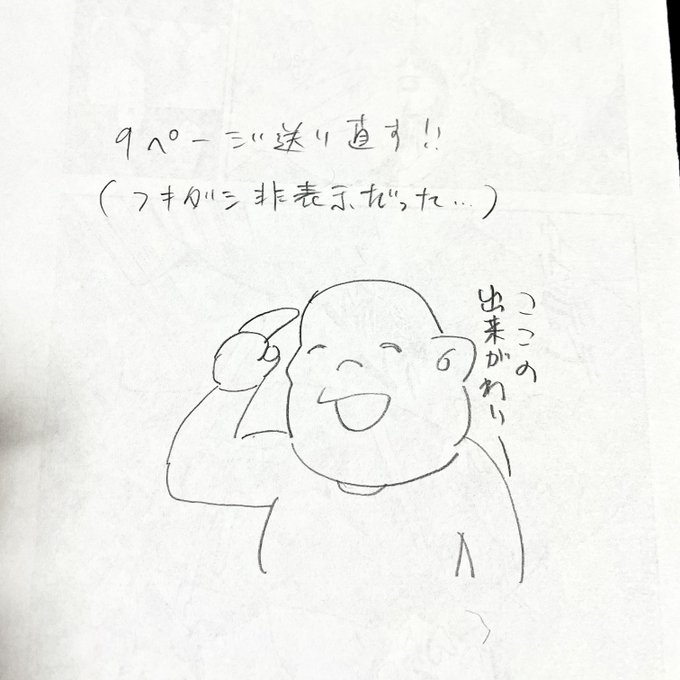 9ページ送り直す!!
(フキダシ非表示だった…)
ここの
出来がわりー